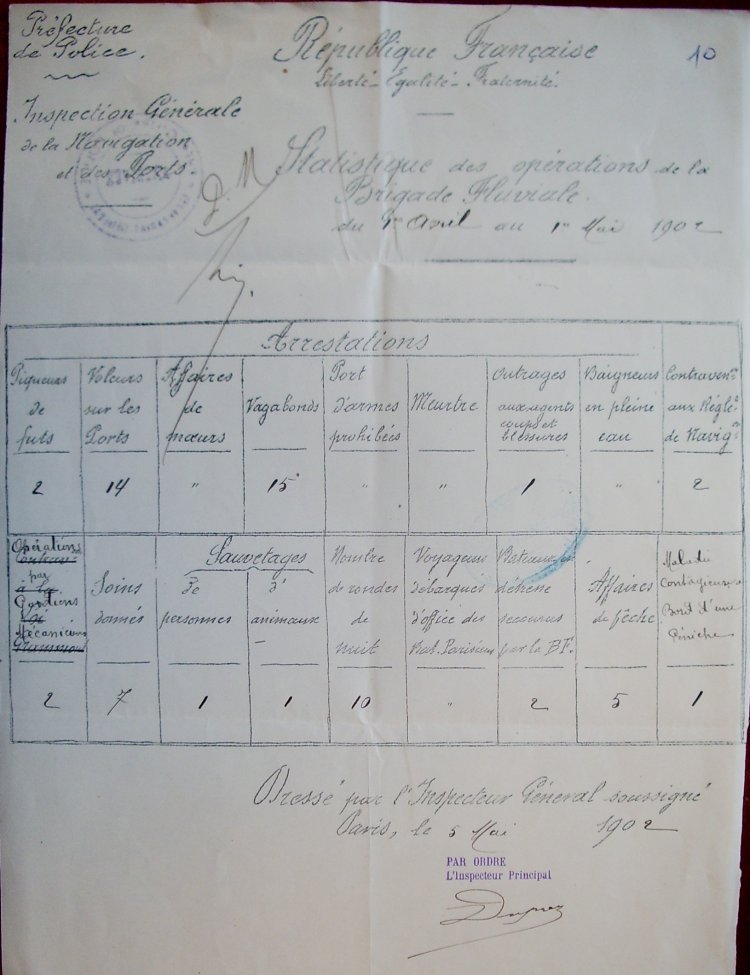 Préfecture
de Police.
République Française
10
Liberté - Égalité - Fraternité.
Inspection Générale
de la Navigation
et des Ports.
Statistique des opérations de la
Brigade Fluviale.
du 1er Avril au 1er Mai 1902
Arrestations
Piqueurs de futs
Voleurs sur les Ports
Affaires de mœurs
Vagabonds
Port d'armes prohibées
Meurtre
Outrages aux agents coups et blessures
Baigneurs en pleine eau
Contraven^ons aux Régle^ts de Navig^on
2 14 " 15 " " 1 " 2
Opérations par Gardiens Mécaniciens
Soins donnés
Sauvetages
de personnes
d' animaux
Nombre de rondes de nuit
Voyageurs débarqués d'office des Bat. Parisiens
Bateaux en détresse secourus par la B.F.
Affaires de pêche
Maladie Contagieuse Bord d'une Péniche
2 7 1 1 10 " 2 5 1
Dressé par l'Inspecteur Général soussigné
Paris, le 5 Mai 1902
PAR ORDRE
L'Inspecteur Principal